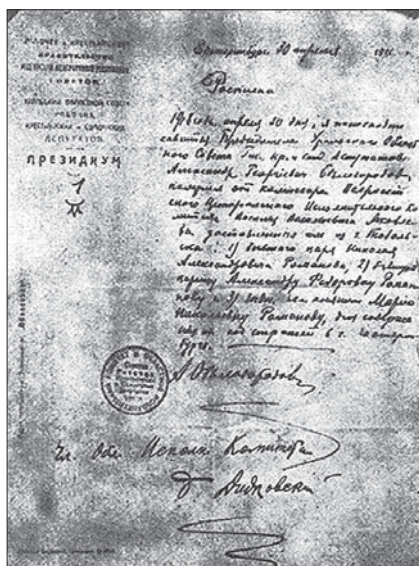 РАБОЧЕЕ и КРЕСТЬЯНСКОЕ
ПРАВИТЕЛЬСТВО
СОВЕТОВ
РАБОЧИХ,
КРЕСТЬЯНСКИХ и СОЛДАТСКИХ
ДЕПУТАТОВ
ПРЕЗИДИУМ
Екатеринбург 30 апреля 191 г.
Расписка
1918 года апреля 30 дня, я нижепод
савшийся Председатель Уральского Област
ного Совета Раб. кр. и солд. депутатов
Александр Георгиевич Белобородов
получил от комиссара Всеросси
ского Центрального Исполнительного Ко
митета Василия Васильевича Яковле
ва доставленных им из г. Тоболь
ска: 1) бывшего царя Николая
Александровича Романова, 2) бывшую
царицу Александру Федоровну Рома
нову и 3) бывш. вел. княжну Марию
Николаевну Романову, для содержа
ния их под стражей в г. Екатерин
бурге.
А. Белобородов
Чл. Обл. Исполн. Комитета
Дидковский